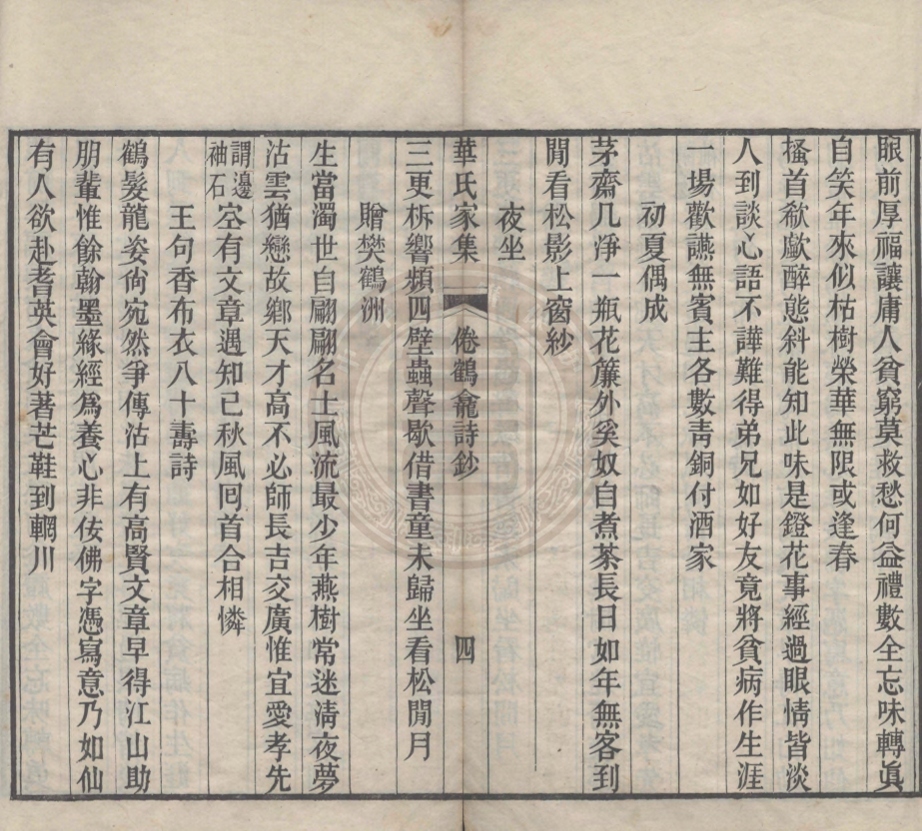 眼前厚福讓庸人貧窮莫救愁何益禮數全忘味轉眞
自笑年來似枯樹榮華無限或逢春
搔首欷歔醉態斜能知此味是鐙花事經過眼情皆淡
人到談心語不譁難得弟兄如好友竟將貧病作生涯
一場歡讌無賓主各數靑銅付酒家
初夏偶成
茅齋几淨一瓶花簾外奚奴自煮茶長日如年無客到
閒看松影上窗紗
夜坐
華氏家集
倦鶴龕詩鈔
四
三更柝響頻四壁蟲聲歇借書童未歸坐看松閒月
贈樊鶴洲
生當濁世自翩翩名士風流最少年燕樹常迷淸夜夢
沽雲猶戀故鄉天才高不必師長吉交廣惟宜愛孝先
謂邊
袖石
空有文章遇知己秋風囘首合相憐
王句香布衣八十壽詩
鶴髮龍姿尙宛然爭傳沽上有高賢文章早得江山助
朋輩惟餘翰墨緣經爲養心非佞佛字憑寫意乃如仙
有人欲赴耆英會好著芒鞋到輞川